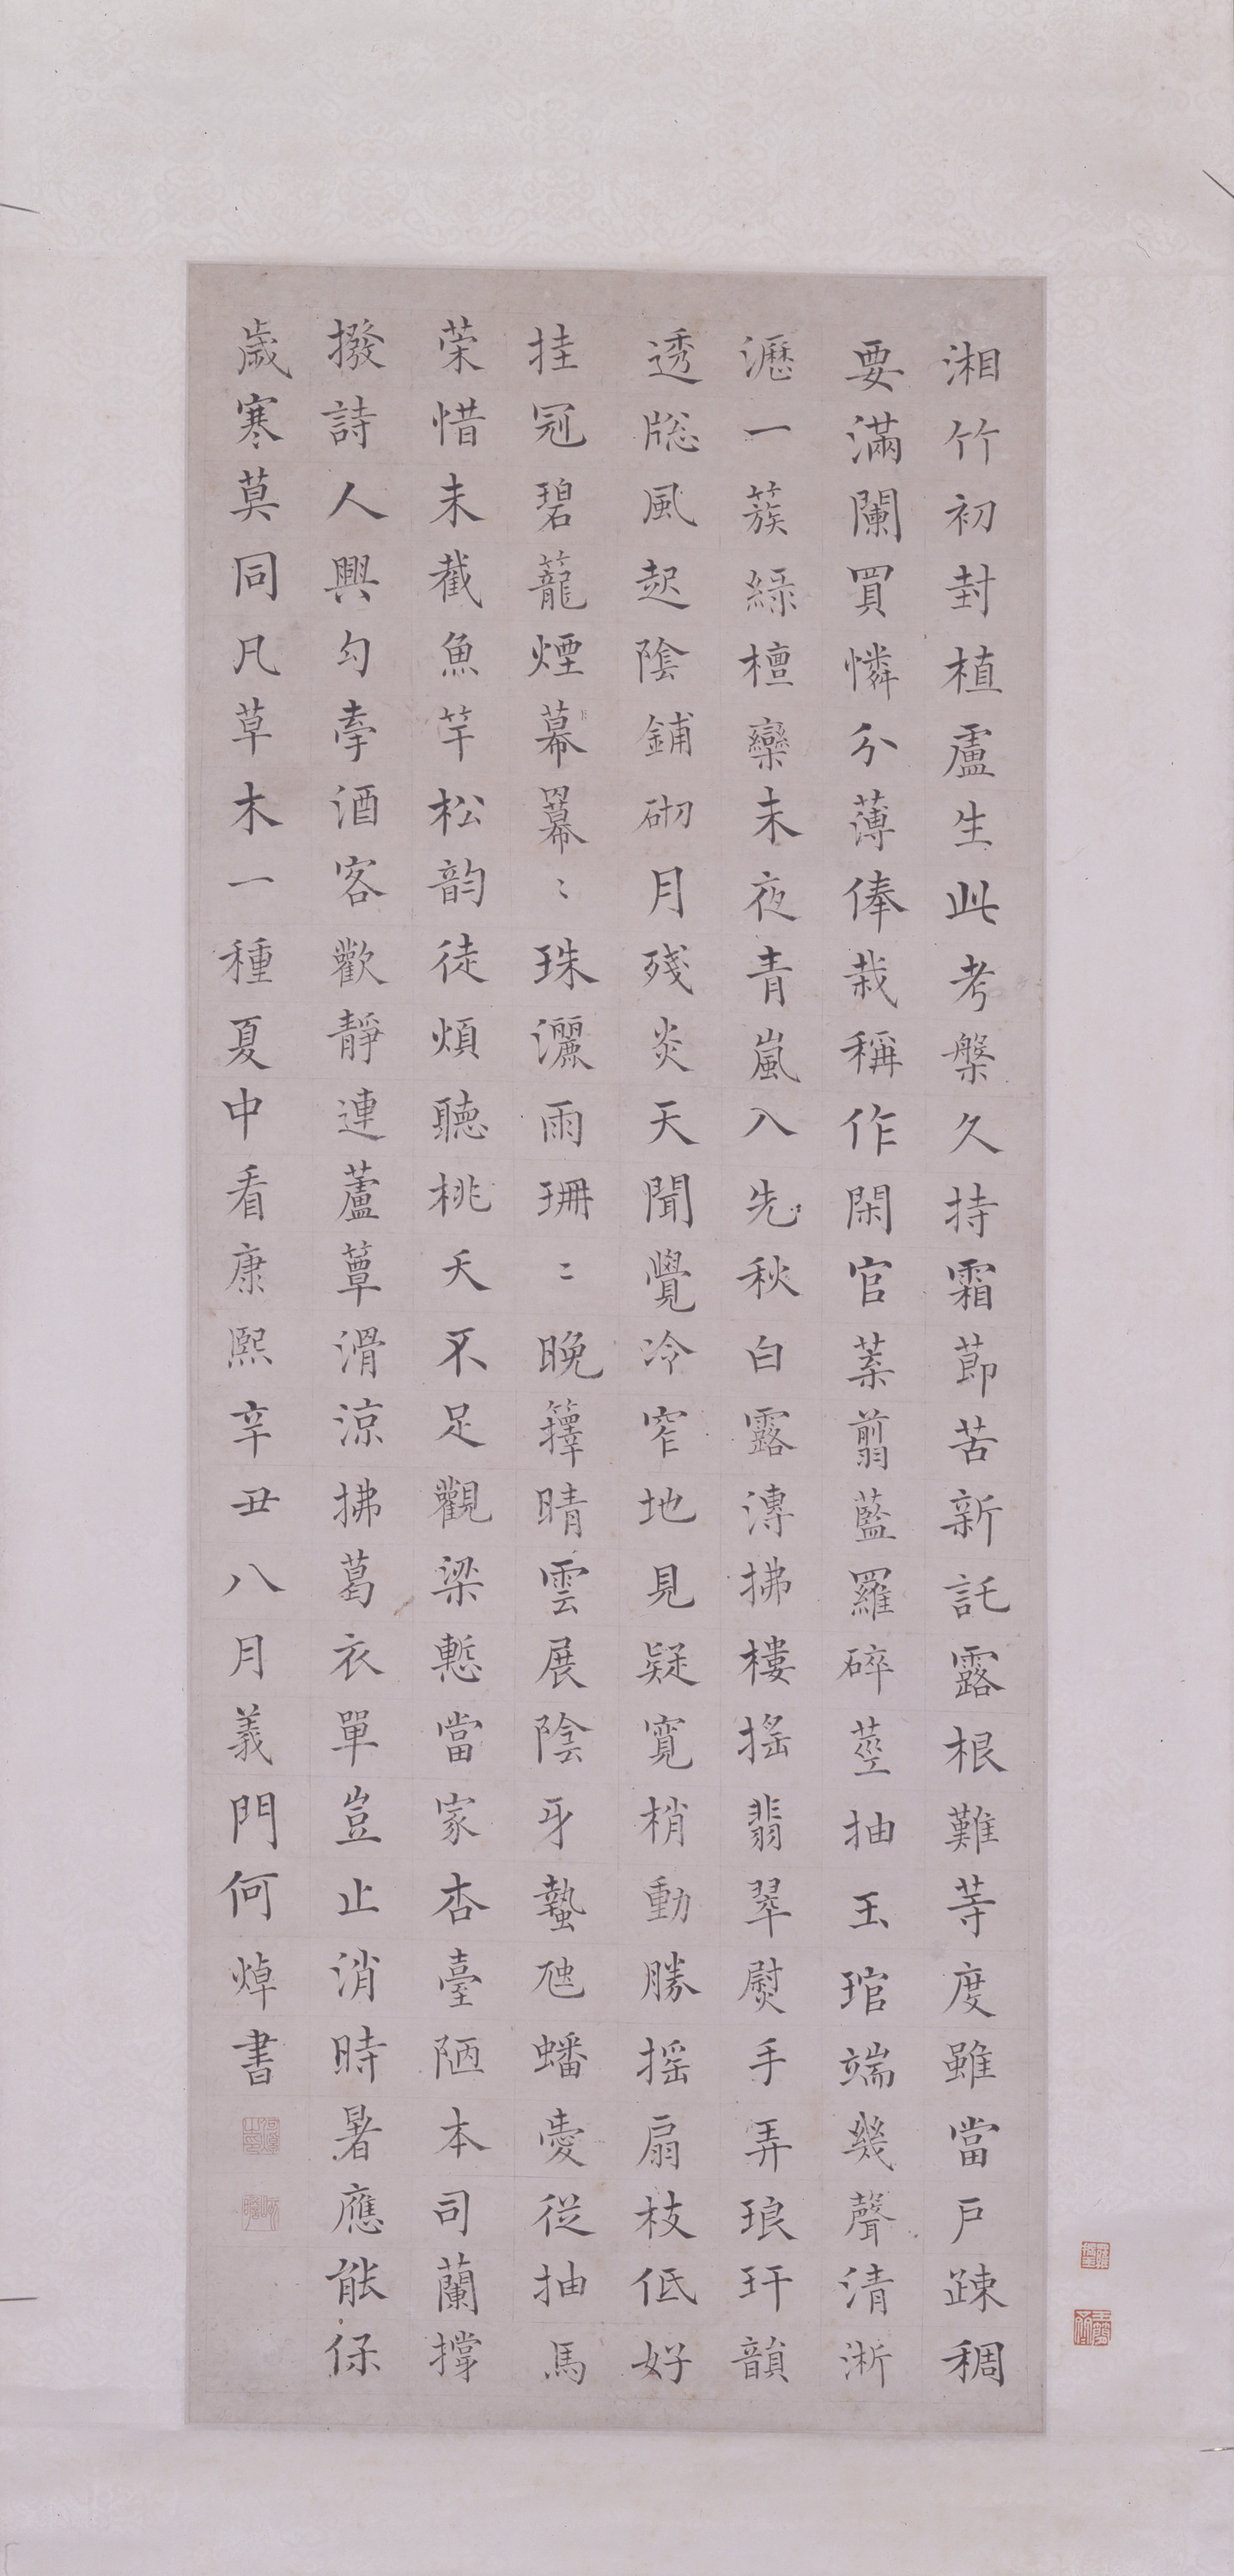 湘竹初封植盧生此考槃久持霜莭苦新託露根難等度雖當戶踈稠
要滿闌買憐分薄俸栽稱作閑官葉翦藍羅碎莖抽玉琯端幾聲清淅
瀝一簇綠檀欒未夜青嵐入先秋白露漙拂樓搖翡翠熨手弄琅玕韻
透牕風起陰鋪砌月殘炎天聞覺冷窄地見疑寬梢動勝搖扇枝低好
挂冠碧籠煙幕冪〻珠灑雨珊〻晚籜晴雲展陰牙蟄虺蟠愛從抽馬
策惜未截魚竿松韵徒煩聽桃夭不足觀梁慙當家杏臺陋本司蘭撑
撥詩人興勾牽酒客歡靜連蘆簟滑涼拂葛衣單豈止消時暑應能保
歲寒莫同凡草木一種夏中看康熙辛丑八月義門何焯書